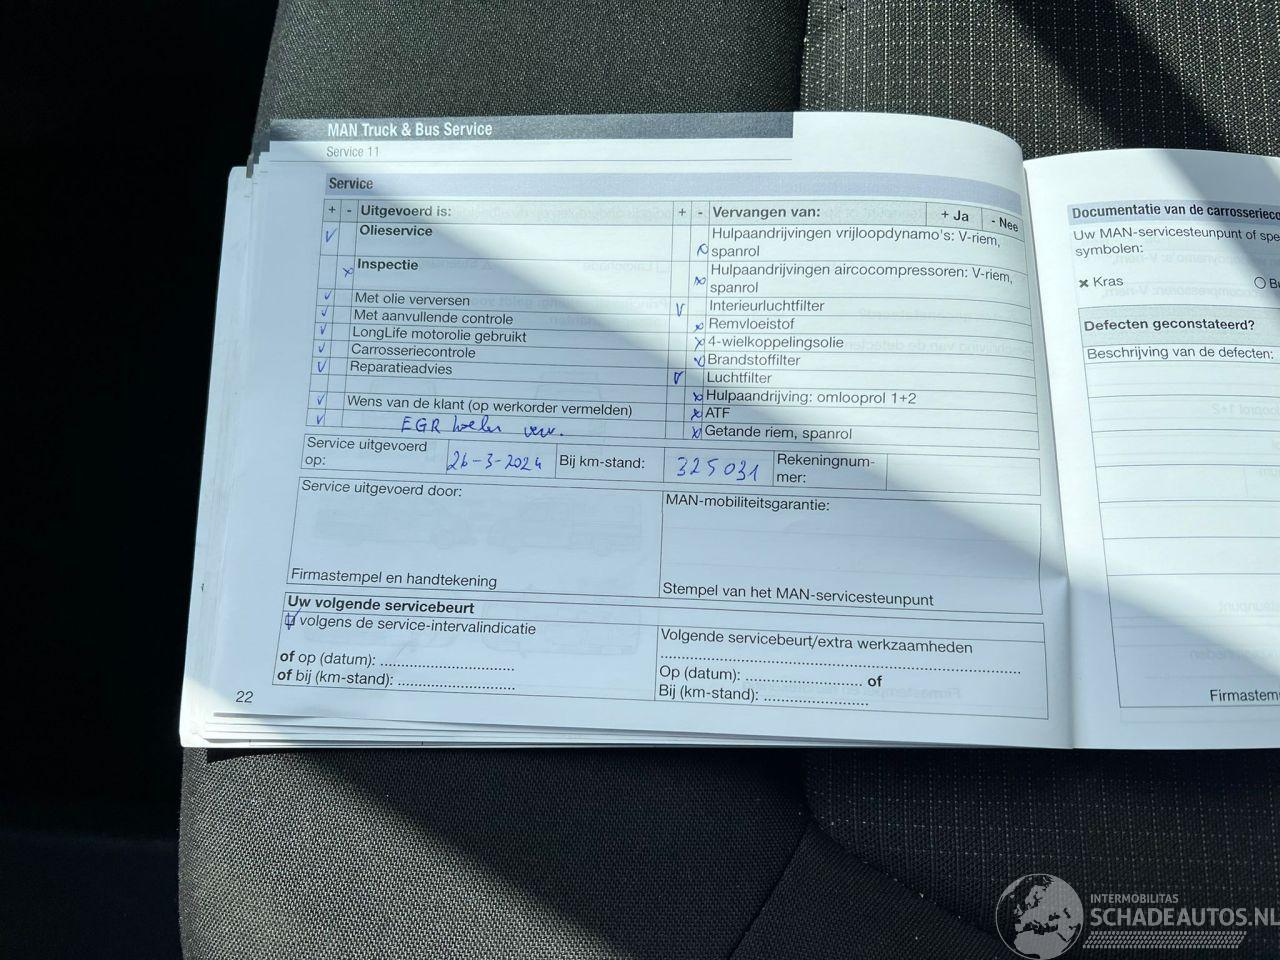 MAN Truck & Bus Service
Service 11
Service
+ - Uitgevoerd is:
Olieservice
Inspectie
Met olie verversen
Met aanvullende controle
LongLife motorolie gebruikt
Carrosseriecontrole
Reparatieadvies
Wens van de klant (op werkorder vermelden)
EGR koeler verv.
+ - Vervangen van: + Ja - Nee
Hulpaandrijvingen vrijloopdynamo's: V-riem,
spanrol
Hulpaandrijvingen aircocompressoren: V-riem,
spanrol
Interieurluchtfilter
Remvloeistof
4-wielkoppelingsolie
Brandstoffilter
Luchtfilter
Hulpaandrijving: omlooprol 1+2
ATF
Getande riem, spanrol
Service uitgevoerd
op:
26-3-2024
Bij km-stand:
325031
Rekeningnum-
mer:
Service uitgevoerd door:
Firmastempel en handtekening
MAN-mobiliteitsgarantie:
Stempel van het MAN-servicesteunpunt
Uw volgende servicebeurt
volgens de service-intervalindicatie
of op (datum): ..............................
of bij (km-stand): ..........................
Volgende servicebeurt/extra werkzaamheden
Op (datum): .......................... of
Bij (km-stand): .......................
22
Documentatie van de carrosserieco
Uw MAN-servicesteunpunt of spe
symbolen:
× Kras
Defecten geconstateerd?
Beschrijving van de defecten:
Firmastem
INTERMOBILITAS
SCHADEAUTOS.NL